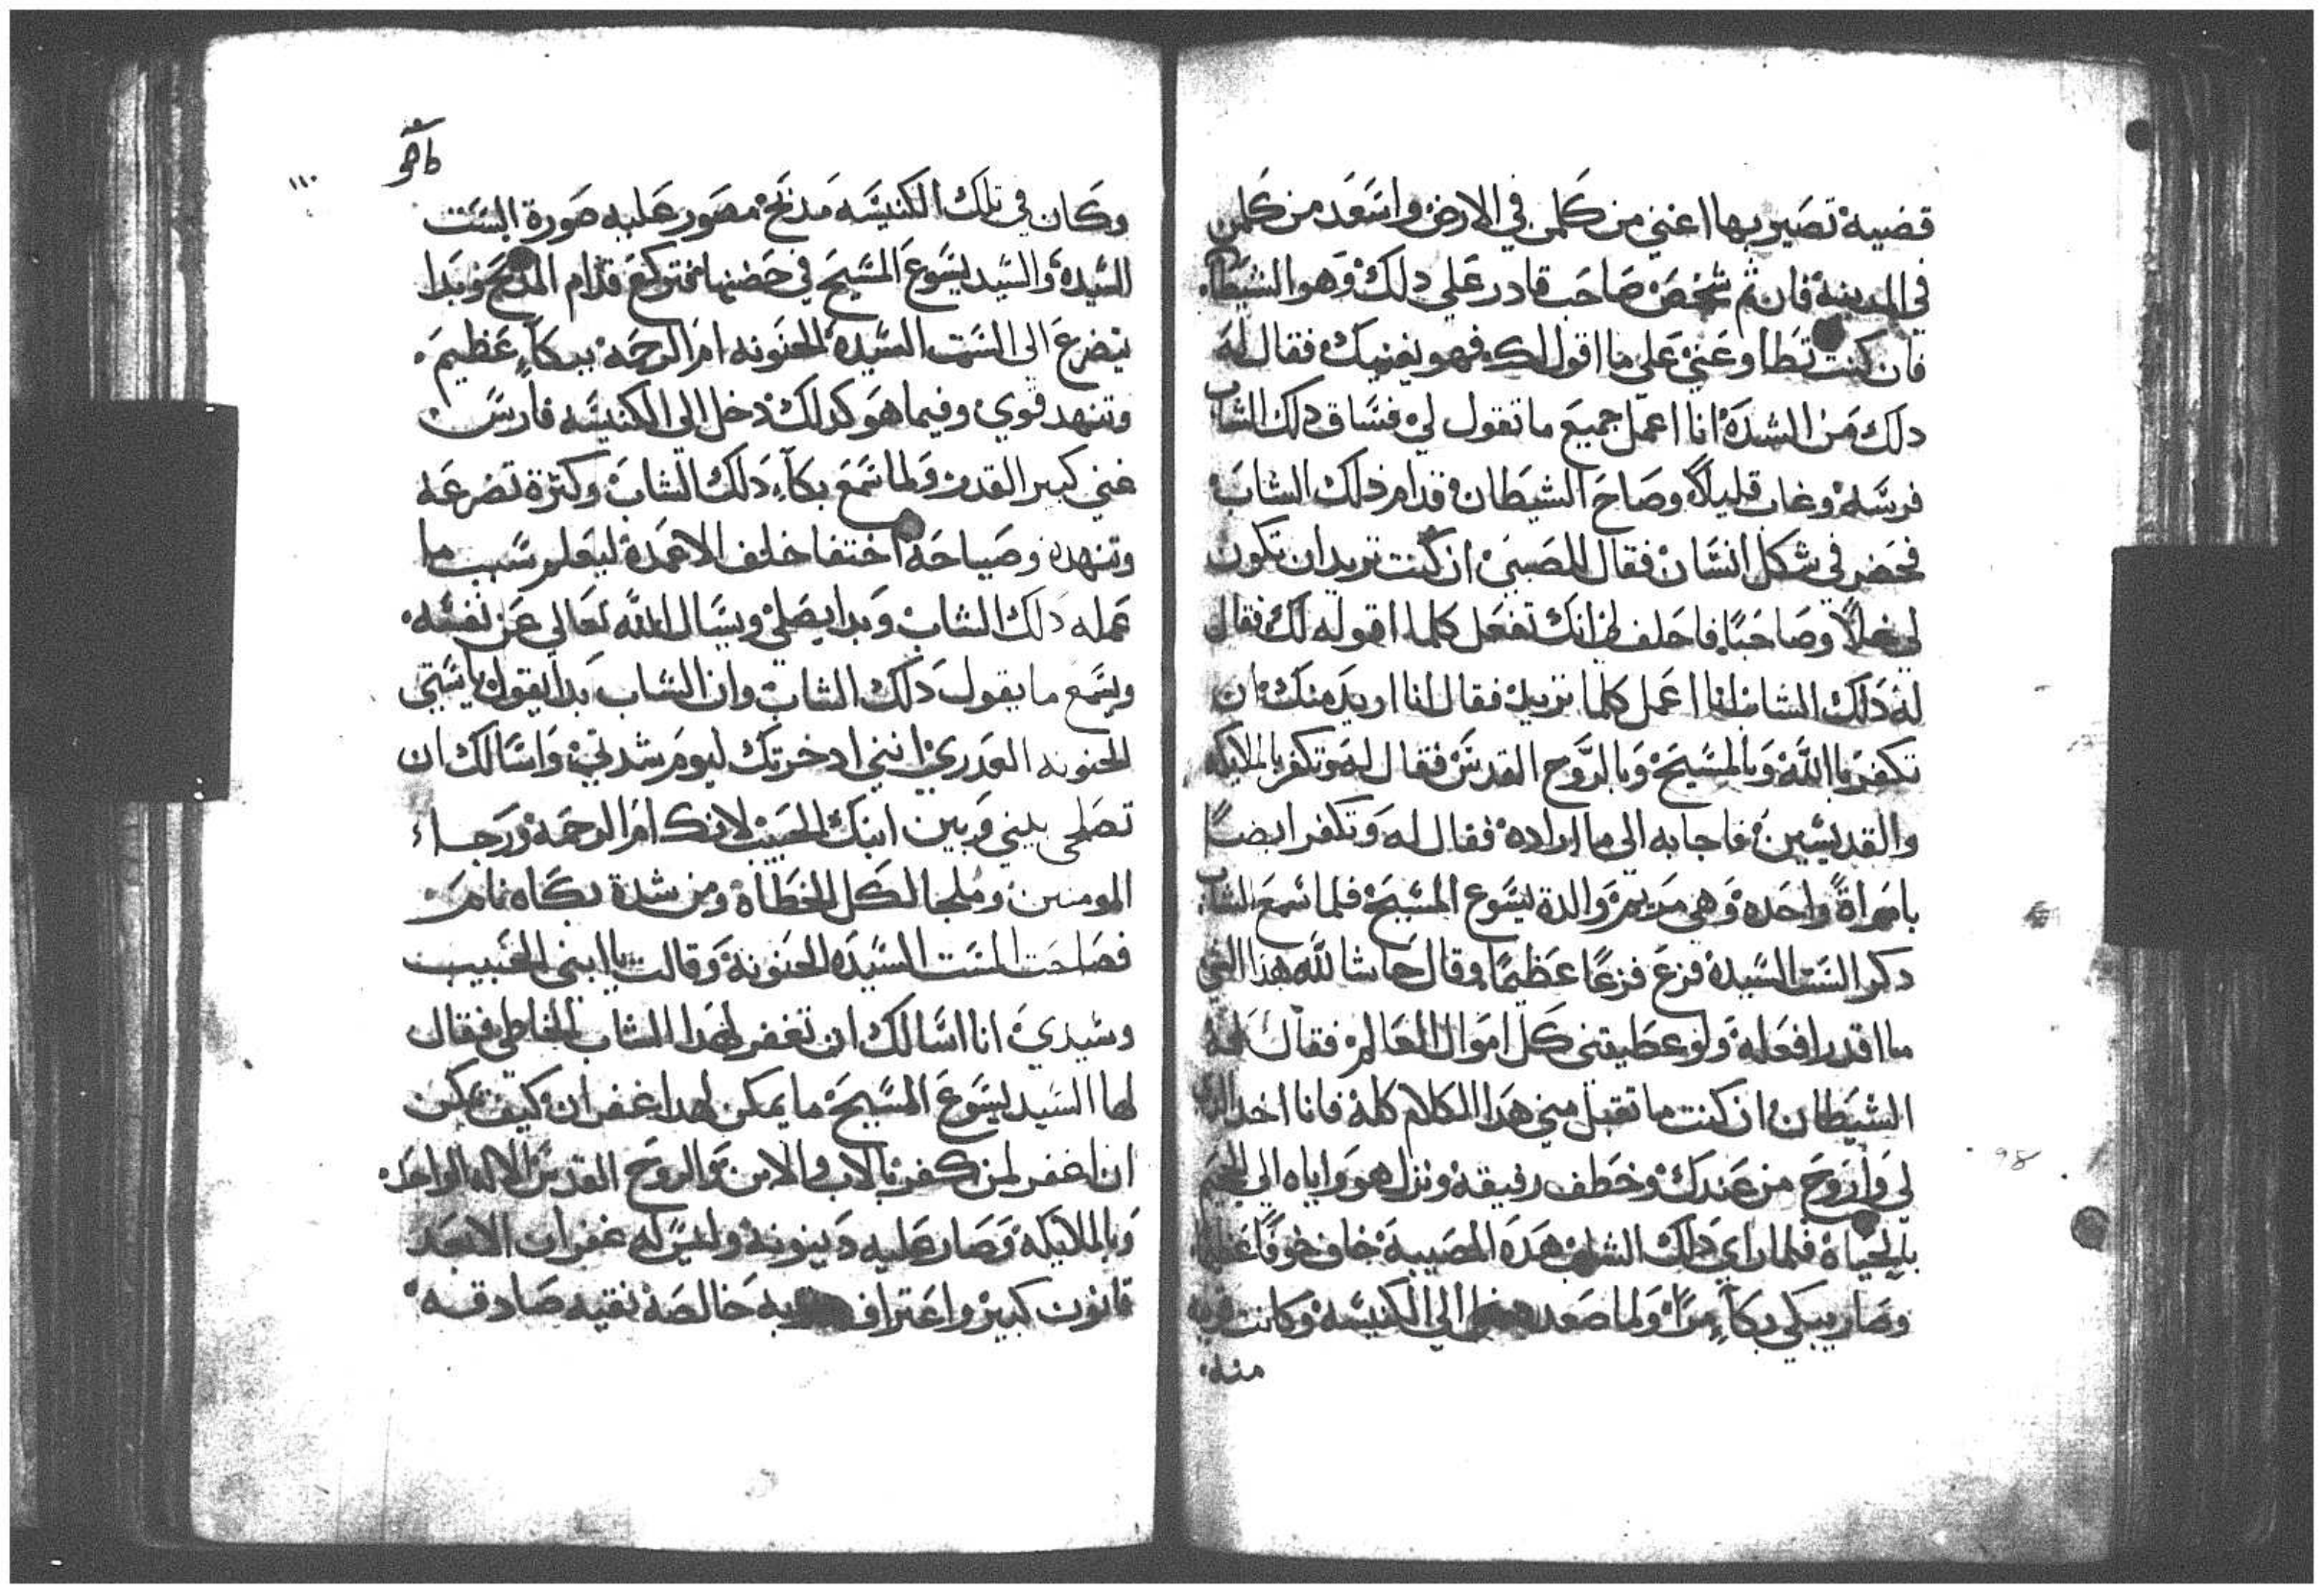 قضيه تصير بها اغني من كلمن في الارض واسعد من كلمن
في المدينه فان ثم شخص صاحب قادر علي دلك وهو الشيطان
فان كنت تطاوعني علي ما اقول لك فهو يغنيك فقال له
دلك من الشده انا اعمل جميع ما تقول لي فساق دلك الشاب
فرسه وغاب قليلاً وصاح الشيطان قدام ذلك الشاب
فحضر في شكل انسان فقال للصبي ان كنت تريد ان تكون
لي خلاً وصاحبًا فاحلف لي انك تفعل كلما اقوله لك فقال
له دلك الشاب انا اعمل كلما تريد فقال انا اريد منك ان
تكفر باالله وبالمسيح وبالروح القدس فقال له وتكفر بالملايكه
والقديسين فاجابه الي ما اراده فقال له وتكفر ايضًا
بامراةً واحده وهي مريم والدة يسوع المسيح فلما سمع الشاب
دكر الست السيده فزع فزعًا عظيمًا وقال حاشا لله هذا الشي
ما اقدر افعله ولو عطيتني كل اموال العالم فقال له
الشيطان ان كنت ما تقبل مني هدا الكلام كله فانا اخد
لي واروح من عندك وخطف رفيقه ونزل هو واياه الي الجحيم
بالحياه فلما راي دلك الشاب هده المصيبه خاف خوفًا عظيما
وصار يبكي بكآءٍ مرًا ولما صعد الي الكنيسه وكانت قريبه
منه
وكان في تلك الكنيسه مدبح مصور عليه صورة الست
السيده والسيد يسوع المسيح في حضنها فركع قدام المدبح وبدا
يتضرع الي الست السيده الحنونه ام الرحمه ببكآءٍ عظيم
وتنهد قوي وفيما هو كدلك دخل الي الكنيسه فارس
غني كبير القدر ولما سمع بكآء دلك الشاب وكثرة تضرعه
وتنهده وصياحه اختفا خلف الاعمده ليعلم سبب ما
عمله دلك الشاب وبدا يصلي ويسال الله تعالي عن نفسه
ويسمع ما يقول دلك الشاب وان الشاب بدا يقول يا ستي
الحنونه العدري انني ادخرتك ليوم شدتي واسالك ان
تصلحي بيني وبين ابنك الحبيب لانك ام الرحمه ورجاء
المومنين وملجا لكل الخطاه ومن شدة بكاه نام
فصاحت الست السيده الحنونه وقالت يا ابني الحبيب
وسيدي انا اسالك ان تغفر لهدا الشاب الخاطي فقال
لها السيد يسوع المسيح ما يمكن لهدا غفران كيف يمكن
ان اغفر لمن كفر بالاب والابن والروح القدس الاله الواحد
وبالملايكه وصار عليه دينونه وليس له غفران الا بعد
قانون كبير واعتراف خالصه نقيه صادقه